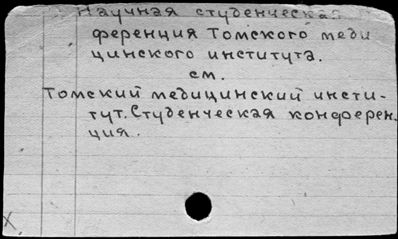 Научная студенческая
ференция Томского меди
цинского института.
см.
Томский медицинский инсти-
тут. Студенческая конферен-
ция.
X